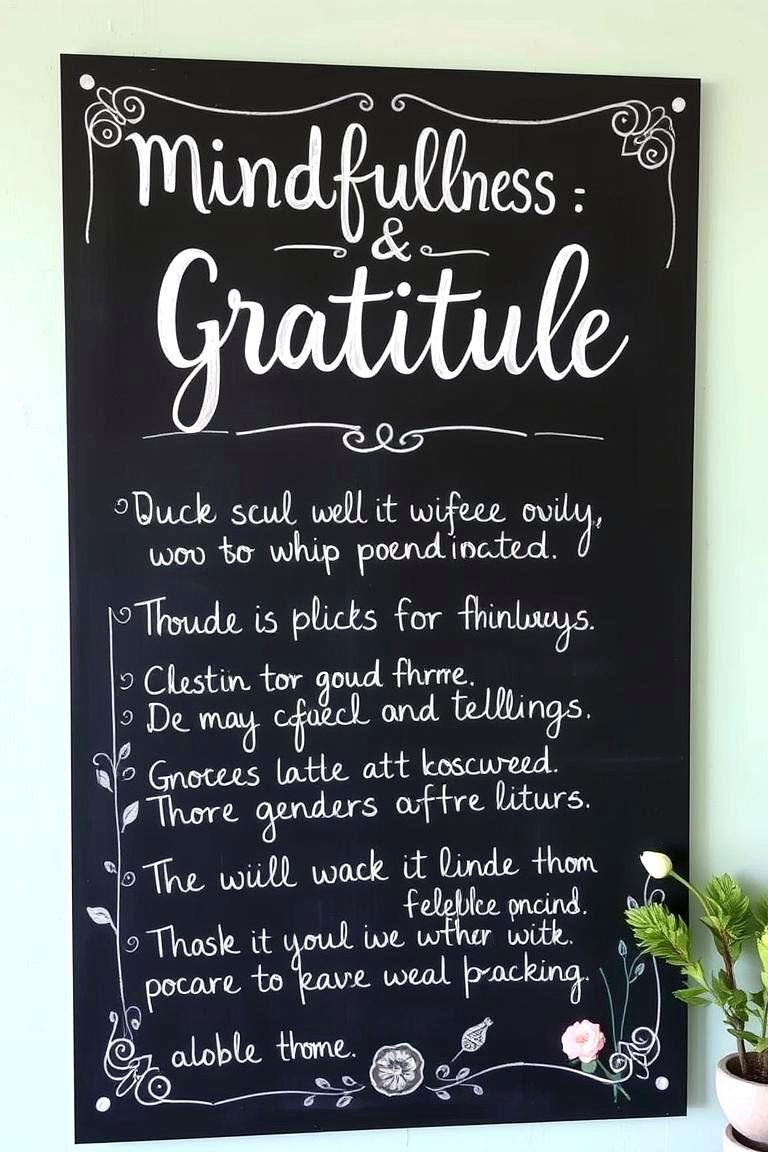 Mindfullness :
&
Gratitule
Duck scul well it wifeee ovily,
woo to whip poendinated.
Thoude is plicks for
Clestin tor goud fhrme.
De may and telllings.
Gnocees latte att koscweed.
Thore genders aftre liturs.
The wiill wack it linde thom
pncind.
Thask it youl iwe wther witk.
pocare to eave weal
aloble thome.